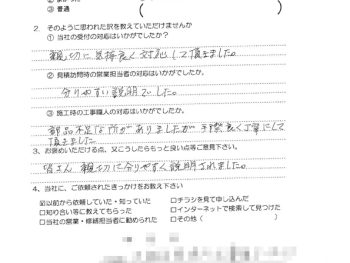 ③ 普通
2. そのように思われた訳を教えていただけませんか
① 当社の受付の対応はいかがでしたか?
親切に気持良く対応して頂きました。
② 見積訪問時の営業担当者の対応はいかがでしたか。
分りやすい説明でした。
③ 施工時の工事職人の対応はいかがでしたか。
部品不足な所がありましたが手際良く丁寧にして
頂きました
3、お褒めいただける点、又こうしたらもっと良い点等ご意見下さい。
皆さん 親切に分りやすく説明されました。
4、当社に、ご依頼されたきっかけをお教え下さい
☑以前から依頼していた・知っていた □チラシを見て申し込んだ
□知り合い等に教えてもらった □インターネットで検索して見つけた
□当社の営業・修繕担当者に勧められた □その他(